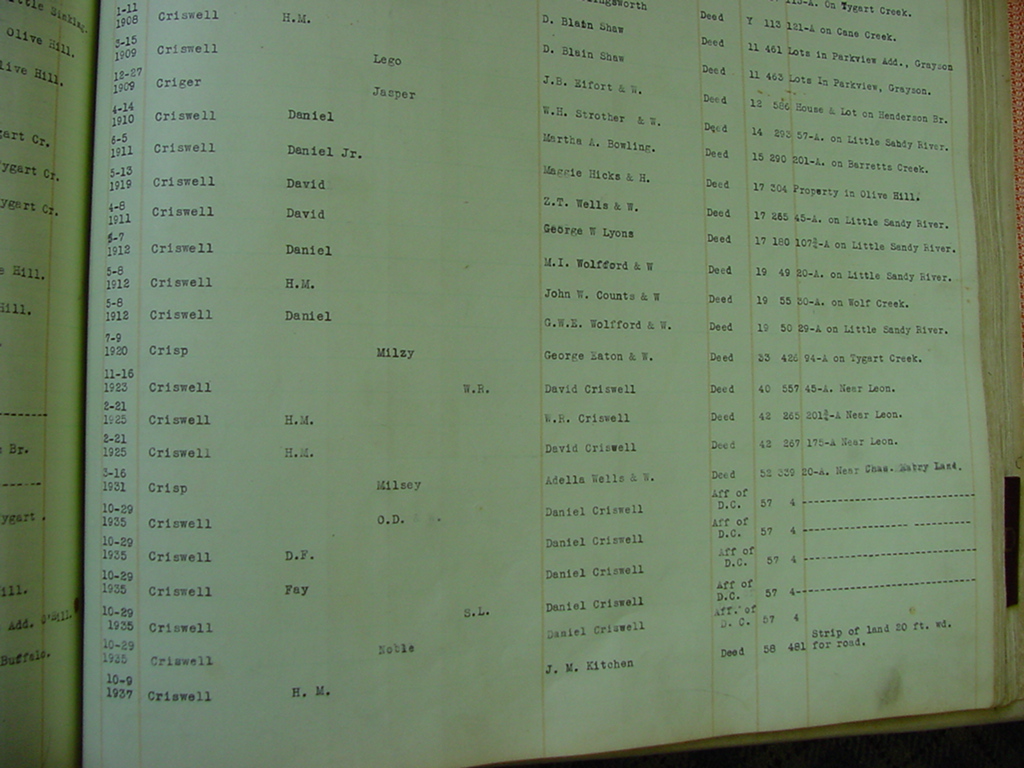 ttle Sinking.
Olive Hill.
live Hill.
gart Cr.
ygart Cr.
ygart Cr.
Hill.
Hill.
Br.
ygart .
ill.
Add. O'Hill.
Buffalo.
113-A. On Tygart Creek.
lingsworth Deed Y 113 121-A on Cane Creek.
1-11
1908 Criswell H.M. D. Blain Shaw Deed 11 461 Lots in Parkview Add., Grayson
D. Blain Shaw Deed 11 463 Lots In Parkview, Grayson.
3-15
1909 Criswell Lego J.B. Eifort & W. Deed 12 586 House & Lot on Henderson Br.
12-27
1909 Criger Jasper W.H. Strother & W. Deed 14 293 57-A. on Little Sandy River.
4-14
1910 Criswell Daniel Martha A. Bowling. Deed 15 290 201-A. on Barretts Creek.
6-5
1911 Criswell Daniel Jr. Maggie Hicks & H. Deed 17 304 Property in Olive Hill.
5-13
1919 Criswell David Z.T. Wells & W. Deed 17 265 45-A. on Little Sandy River.
4-8
1911 Criswell David George W Lyons Deed 17 180 107¾-A on Little Sandy River.
6-7
1912 Criswell Daniel M.I. Wolfford & W Deed 19 49 20-A. on Little Sandy River.
5-8
1912 Criswell H.M. John W. Counts & W Deed 19 55 30-A. on Wolf Creek.
5-8
1912 Criswell Daniel G.W.E. Wolfford & W. Deed 19 50 29-A on Little Sandy River.
7-9
1920 Crisp Milzy George Eaton & W. Deed 33 426 94-A on Tygart Creek.
11-16
1923 Criswell W.R. David Criswell Deed 40 557 45-A. Near Leon.
2-21
1925 Criswell H.M. W.R. Criswell Deed 42 265 201¾-A Near Leon.
2-21
1925 Criswell H.M. David Criswell Deed 42 267 175-A Near Leon.
3-16
1931 Crisp Milsey Adella Wells & W. Deed 52 339 20-A. Near Chas. Mabry Land.
10-29 Aff of
1935 Criswell O.D. Daniel Criswell D.C. 57 4 --------------------
10-29 Aff of
1935 Criswell D.F. Daniel Criswell D.C. 57 4 --------------------
10-29 Aff of
1935 Criswell Fay Daniel Criswell D.C. 57 4 --------------------
10-29 Aff of
1935 Criswell S.L. Daniel Criswell D.C. 57 4--------------------
10-29 Aff. of
1935 Criswell Noble Daniel Criswell D. C. 57 4
10-9 Strip of land 20 ft. wd.
1937 Criswell H. M. J. M. Kitchen Deed 58 481 for road.